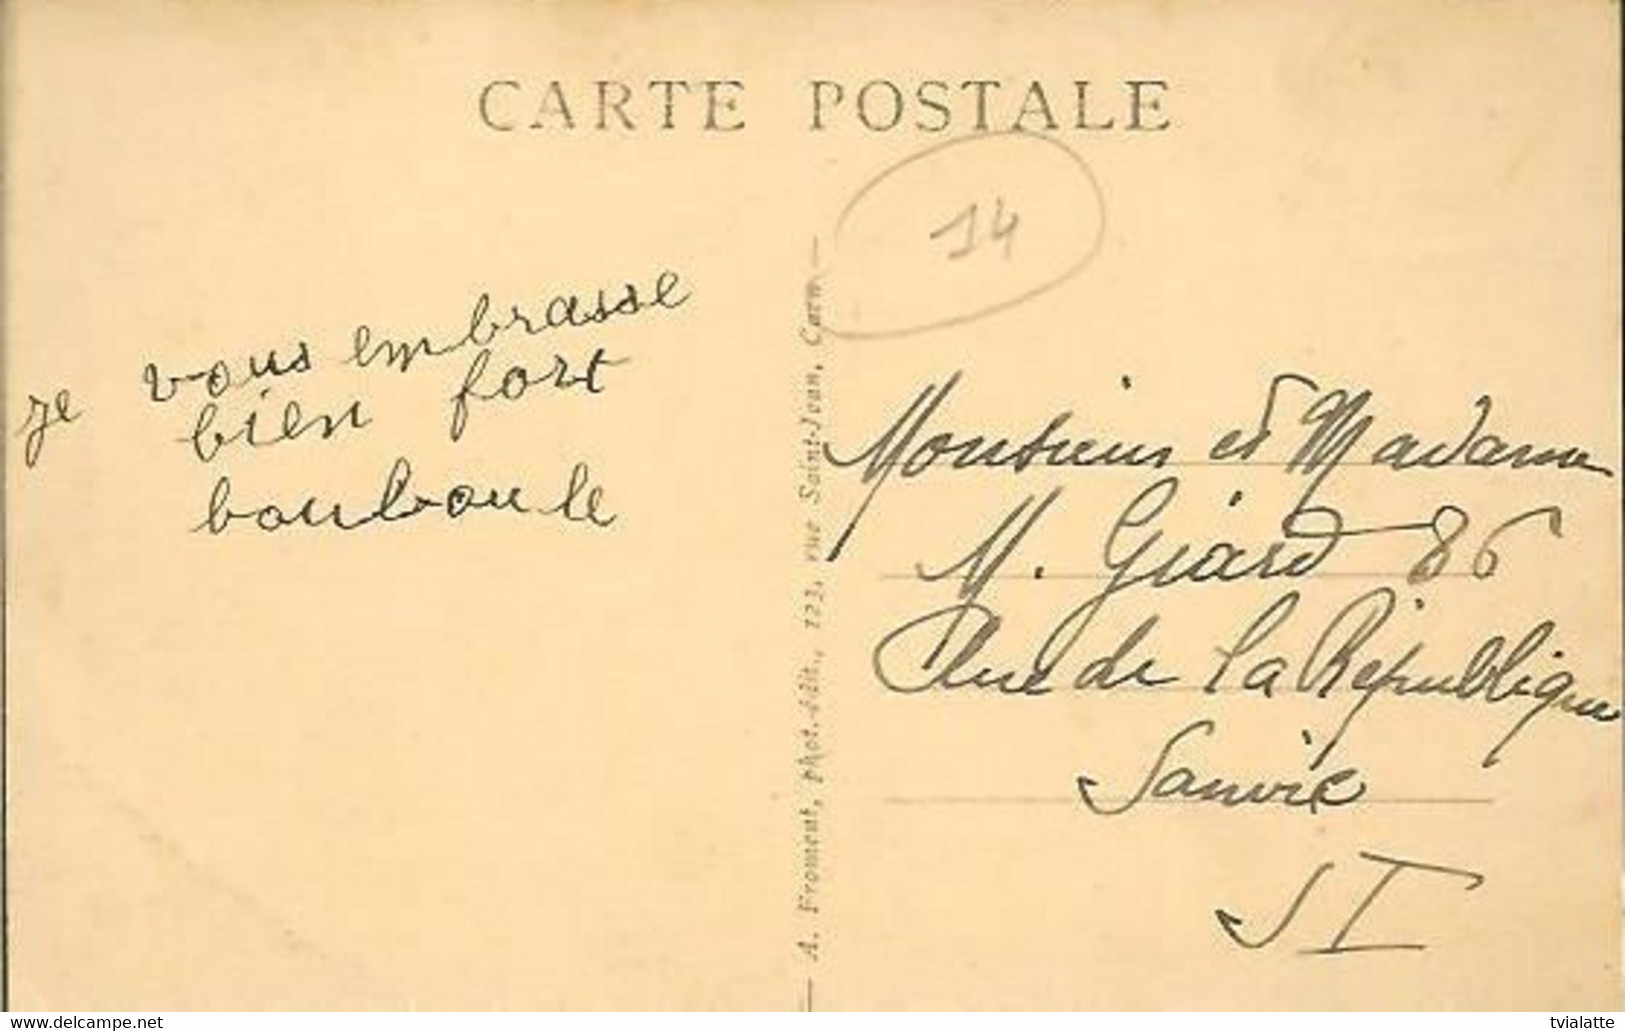 CARTE POSTALE
14
je vous embrasse
bien fort
bouboule
A. Froment, phot.-édit., 123, rue Saint-Jean, Caen
Monsieur et Madame
M. Giard 86
Rue de la République
Sanvic
SI
delcampe.net
tvialatte